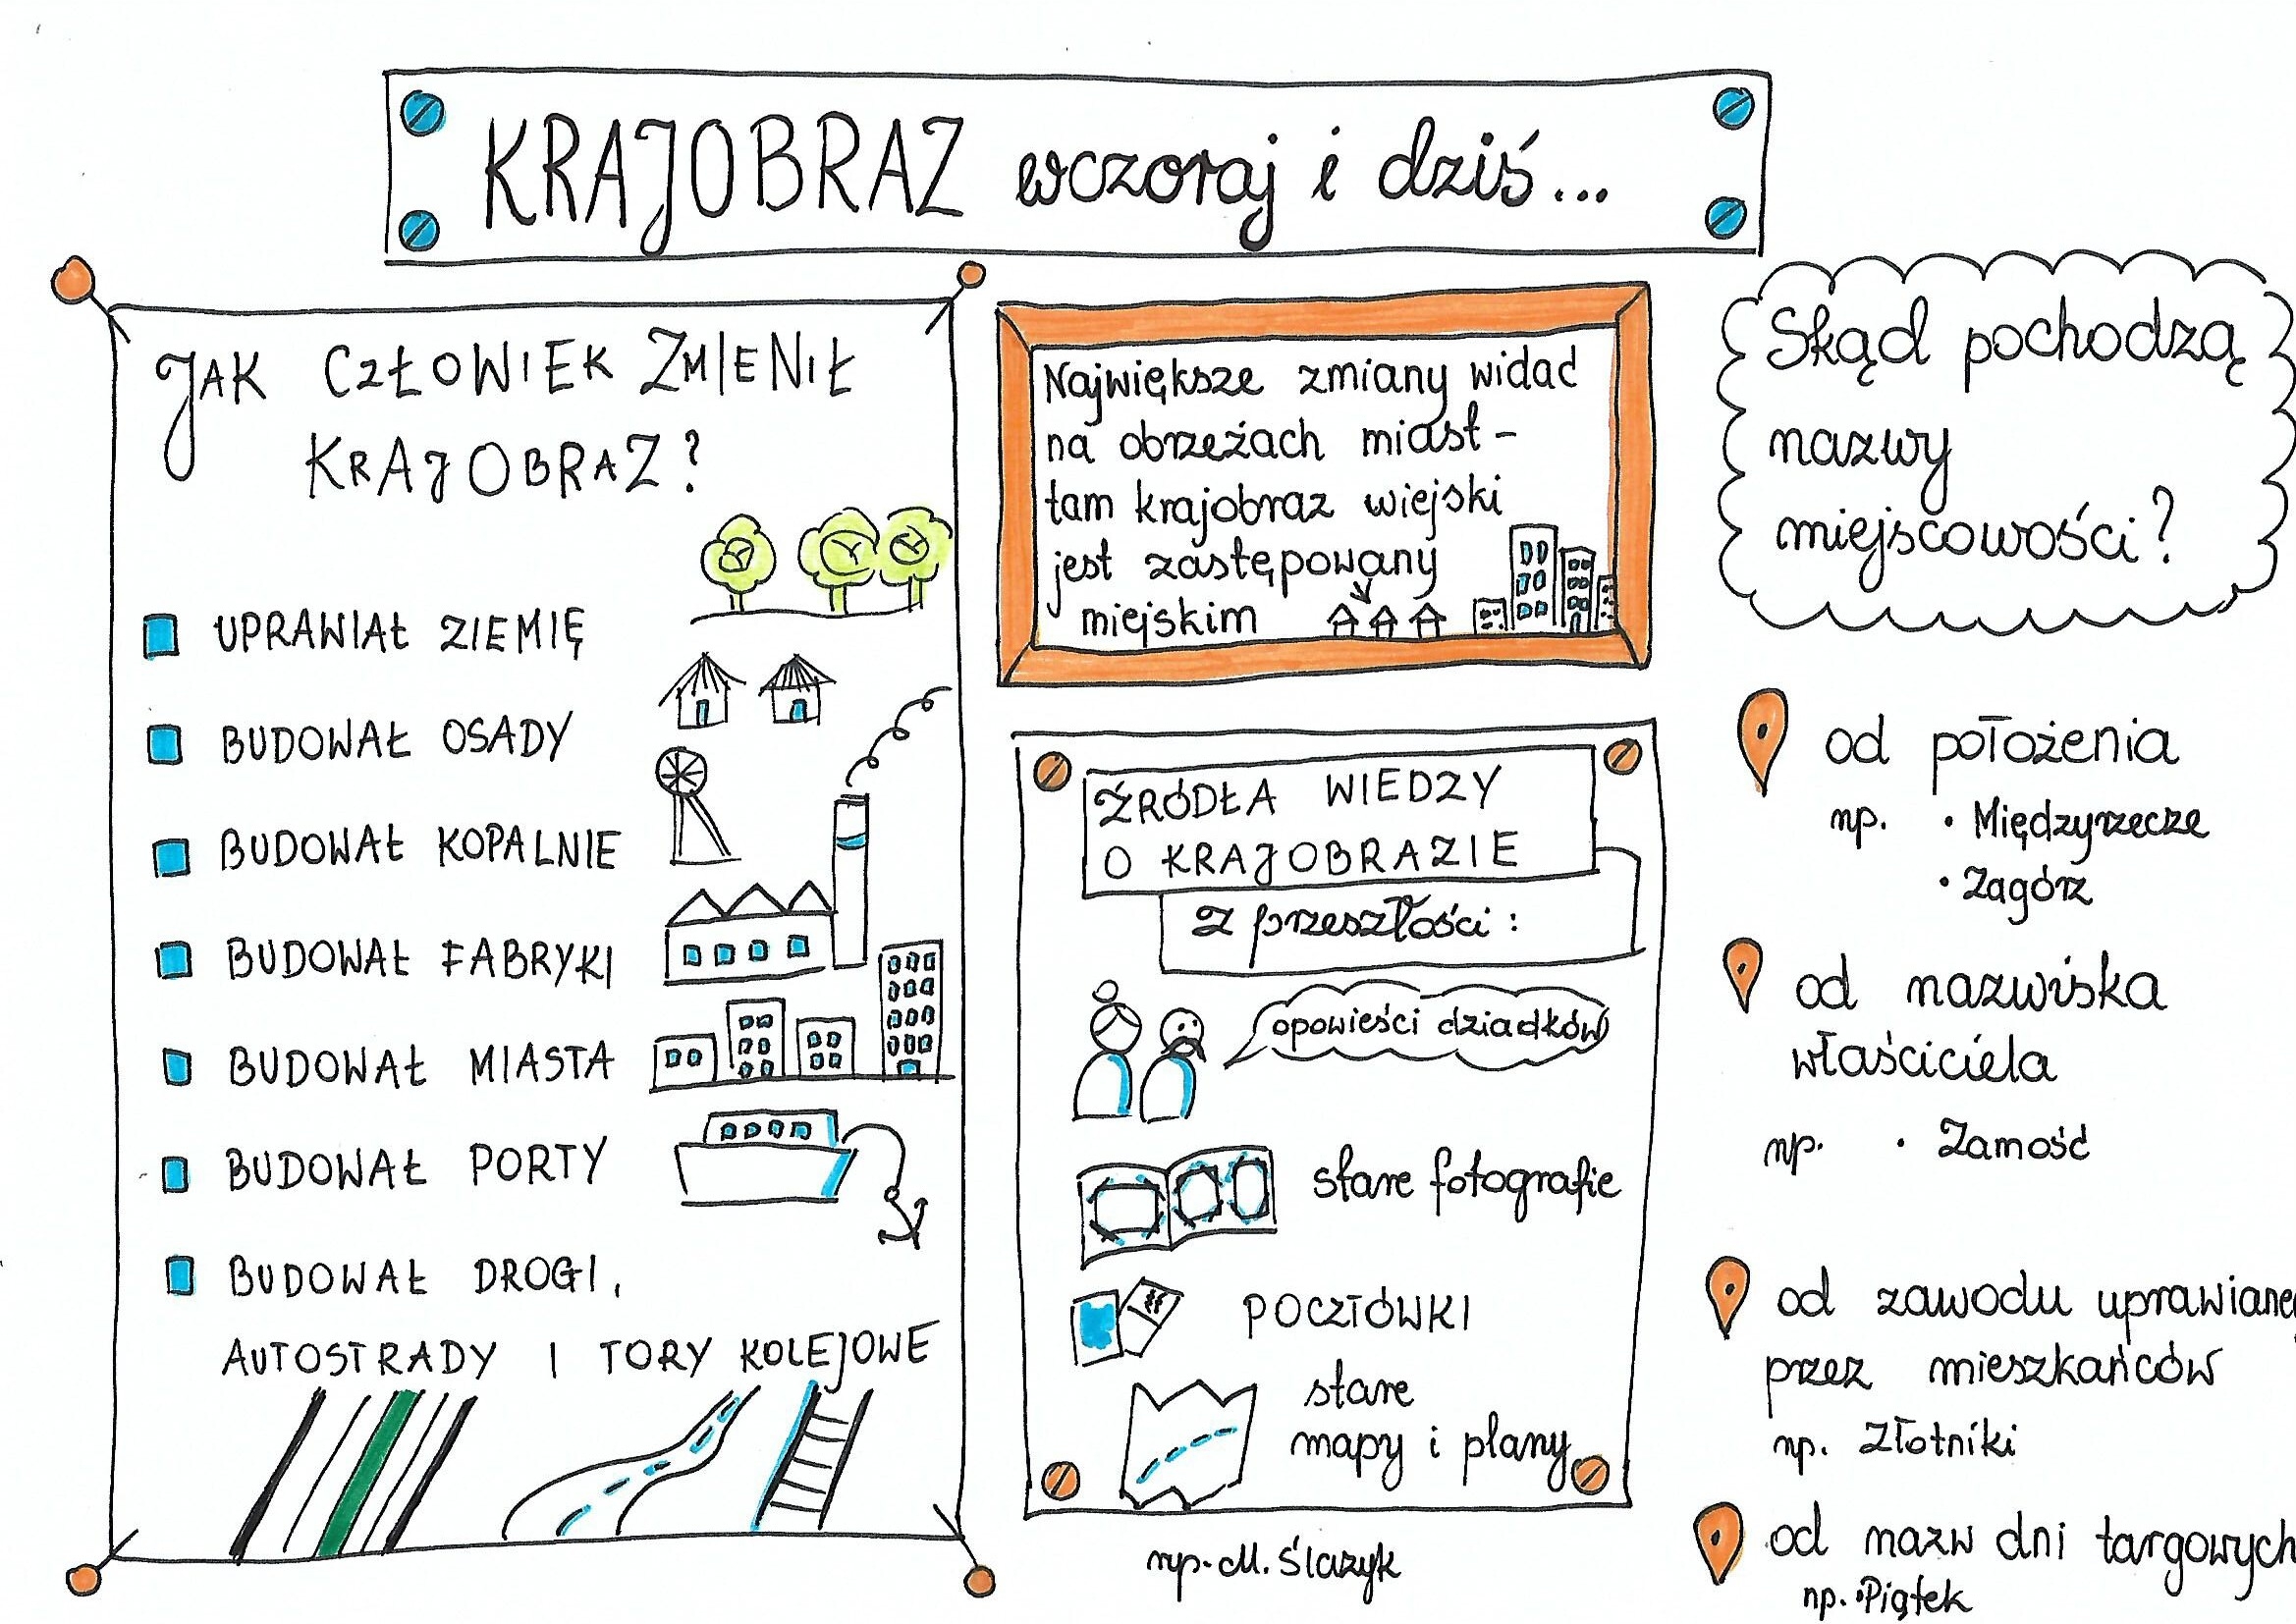 KRAJOBRAZ wczoraj i dziś...
JAK CZŁOWIEK ZMIENIŁ
KRAJOBRAZ?
UPRAWIAŁ ZIEMIĘ
BUDOWAŁ OSADY
BUDOWAŁ KOPALNIE
BUDOWAŁ FABRYKI
BUDOWAŁ MIASTA
BUDOWAŁ PORTY
BUDOWAŁ DROGI,
AUTOSTRADY I TORY KOLEJOWE
Największe zmiany widać
na obrzeżach miast -
tam krajobraz wiejski
jest zastępowany
miejskim
ŹRÓDŁA WIEDZY
O KRAJOBRAZIE
z przeszłości:
opowieści dziadków
stare fotografie
POCZTÓWKI
stare
mapy i plany
Skąd pochodzą
nazwy
miejscowości?
od położenia
np. • Międzyrzecze
• Zagórz
od nazwiska
właściciela
np. • Zamość
od zawodu uprawiane
przez mieszkańców
np. Złotniki
od nazw dni targowych
np. • Piątek